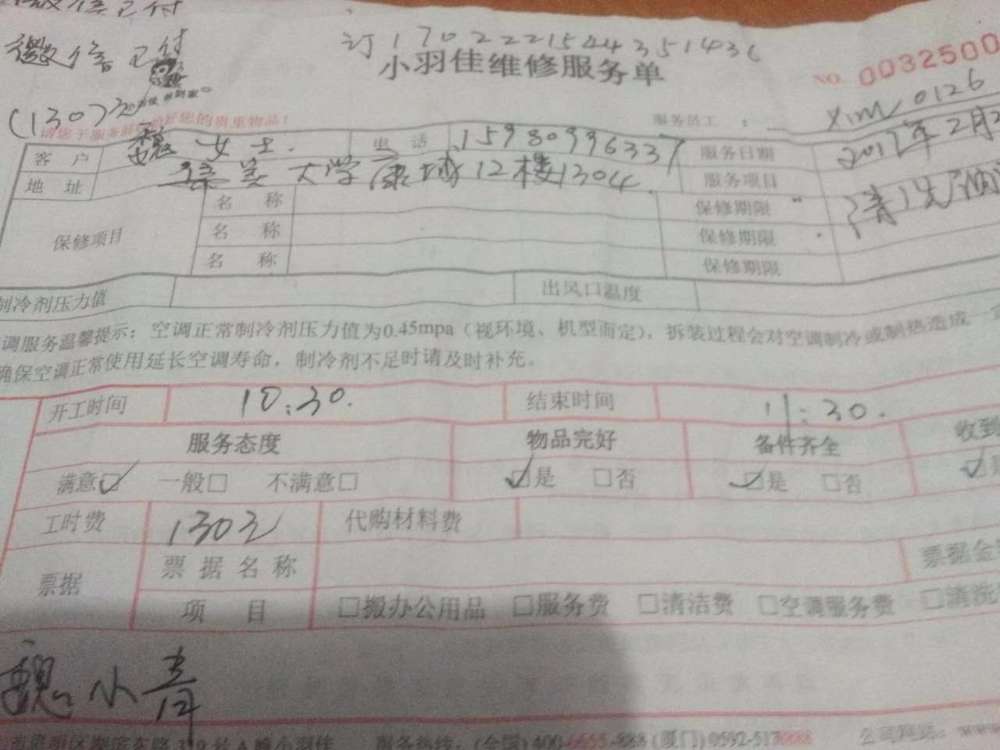 微信已付
微信已付
订1702221544351436
小羽佳维修服务单
NO. 0032500
(130)元
服务员工：
XM0126
客户 魏女士. 电话 15980996337 服务日期 2017年2月2
地址 集美大学康城12楼1304. 服务项目 清洗
保修项目 名称 保修期限
名称 保修期限
名称 保修期限
制冷剂压力值 出风口温度
调服务温馨提示：空调正常制冷剂压力值为0.45mpa（视环境、机型而定），拆装过程会对空调制冷或制热造成一
确保空调正常使用延长空调寿命，制冷剂不足时请及时补充。
开工时间 10:30. 结束时间 11:30.
服务态度 物品完好 备件齐全 收到
满意☑ 一般□ 不满意□ ☑是 □否 ☑是 □否 ☑是
工时费 130元 代购材料费
票据 票据名称 票据金
项目 □搬办公用品 □服务费 □清洁费 □空调服务费 □清洗
魏小青
服务热线：(全国)400-6655-888 (厦门)0592-5178888 公司网站：www